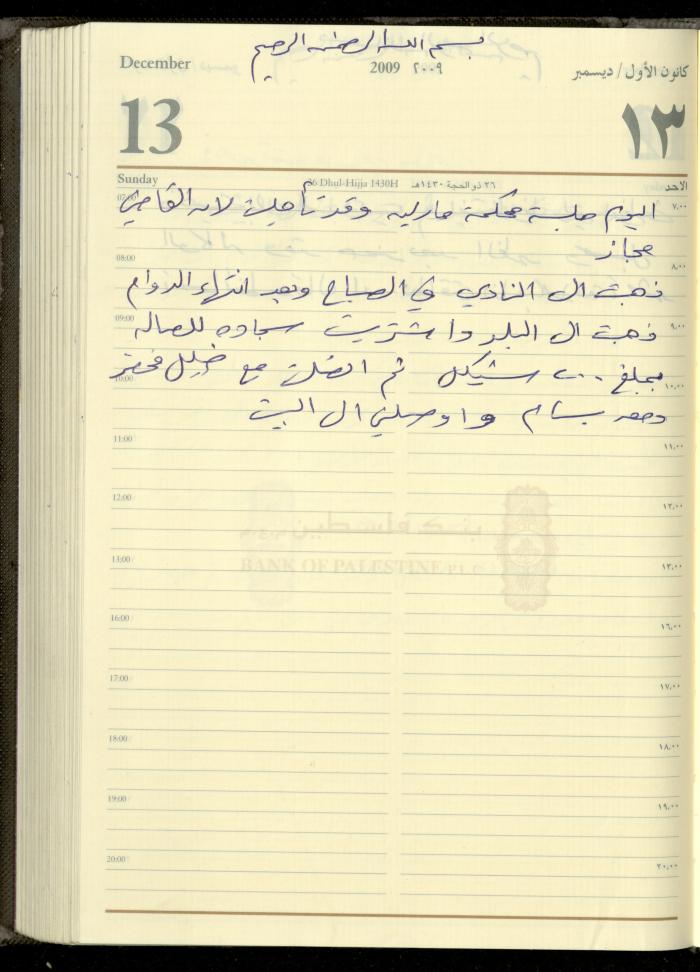 بسم الله الرحمن الرحيم
December
2009 ٢٠٠٩
كانون الأول / ديسمبر
13
١٣
Sunday
26 Dhul-Hijja 1430H ٢٦ ذو الحجة ١٤٣٠هـ
الاحد
07:00 اليوم جلسة محكمة مارليه وقد تأجلت لان القاضي ٧,٠٠
مجاز
08:00 ٨,٠٠
ذهبت ال النادي في الصباح وبعد انتهاء الدوام
09:00 ذهبت ال البلد واشتريت سجاده للصاله ٩,٠٠
10:00 بمبلغ ٢٠٠ شيكل ثم اتصلت مع خليل ١٠,٠٠
ومعه بسام واوصلني ال البيت
11:00 ١١,٠٠
12:00 ١٢,٠٠
بنك فلسطين
BANK OF PALESTINE P.L.C
13:00 ١٣,٠٠
16:00 ١٦,٠٠
17:00 ١٧,٠٠
18:00 ١٨,٠٠
19:00 ١٩,٠٠
20:00 ٢٠,٠٠